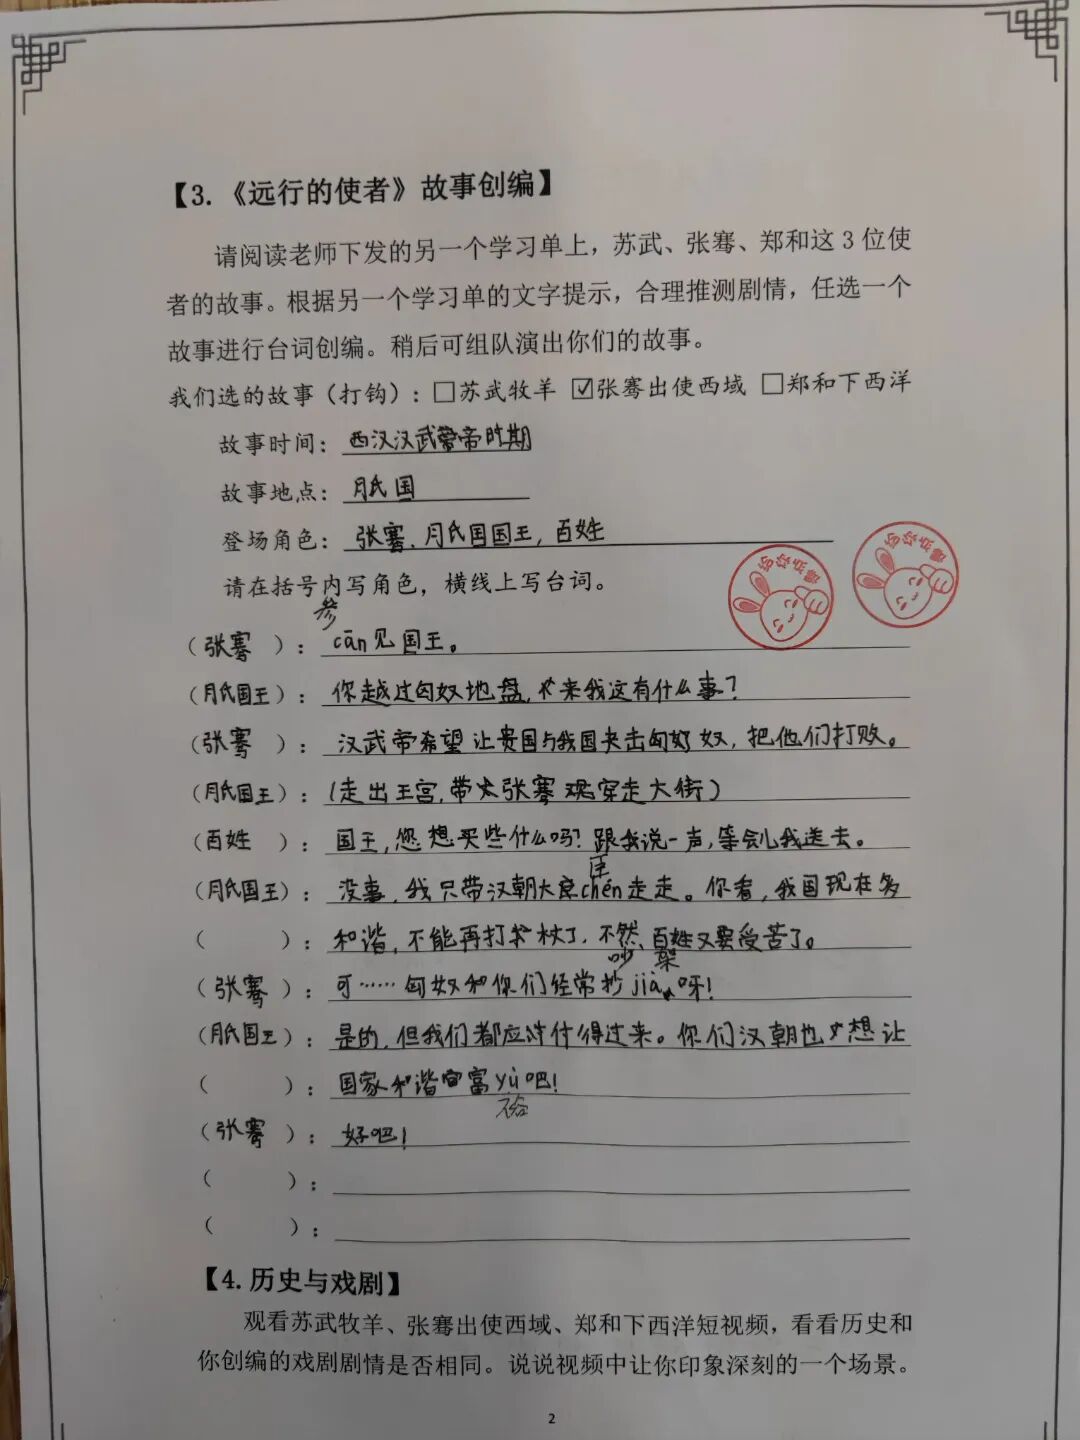 【3.《远行的使者》故事创编】
请阅读老师下发的另一个学习单上，苏武、张骞、郑和这3位使
者的故事。根据另一个学习单的文字提示，合理推测剧情，任选一个
故事进行台词创编。稍后可组队演出你们的故事。
我们选的故事（打钩）：□苏武牧羊 ☑张骞出使西域 □郑和下西洋
故事时间：西汉汉武帝时期
故事地点：月氏国
登场角色：张骞、月氏国国王，百姓
请在括号内写角色，横线上写台词。
参
（张骞）：cān见国王。
（月氏国王）：你越过匈奴地盘，来我这有什么事？
（张骞）：汉武帝希望让贵国与我国夹击匈奴，把他们打败。
（月氏国王）：（走出王宫，带张骞穿走大街）
（百姓）：国王，您想买些什么吗？跟我说一声，等会儿我送去。
臣
（月氏国王）：没事，我只带汉朝大chén走走。你看，我国现在多
（　）：和谐，不能再打仗了，不然，百姓又要受苦了。
吵 架
（张骞）：可……匈奴和你们经常抄jià呀！
（月氏国王）：是的，但我们都应付得过来。你们汉朝也想让
（　）：国家和谐富yù吧！
裕
（张骞）：好吧！
（　）：
（　）：
【4.历史与戏剧】
观看苏武牧羊、张骞出使西域、郑和下西洋短视频，看看历史和
你创编的戏剧剧情是否相同。说说视频中让你印象深刻的一个场景。
2